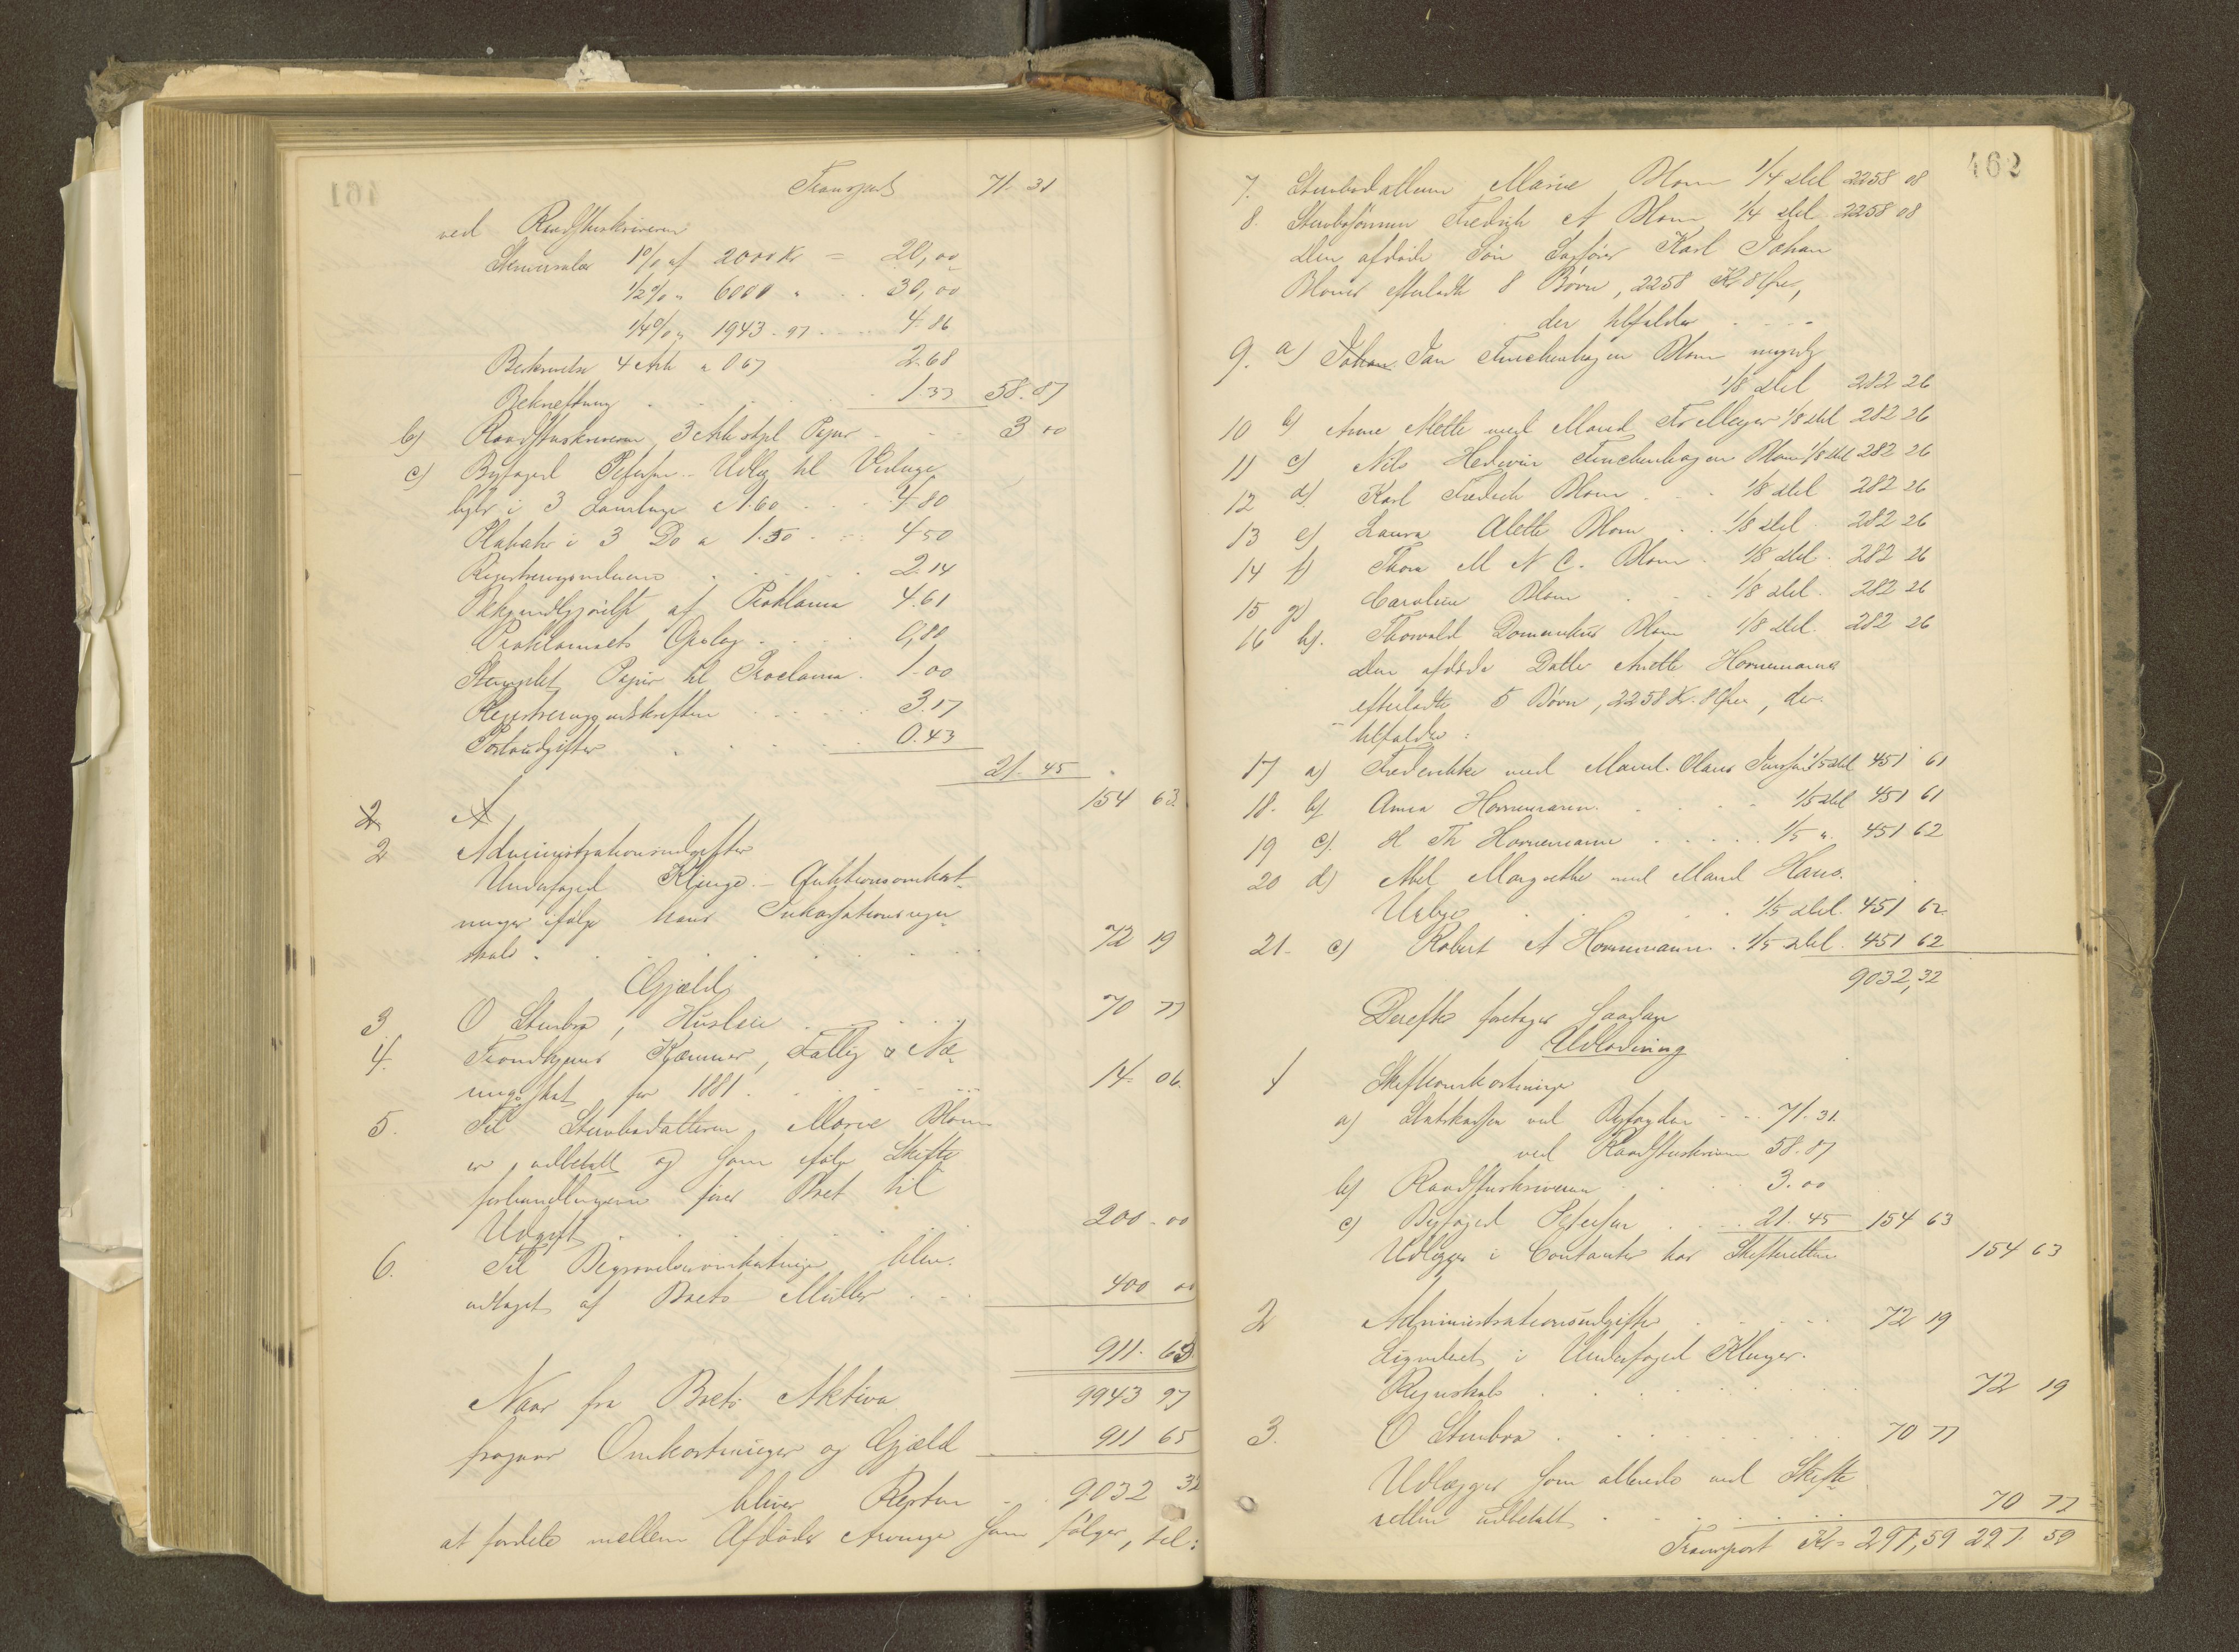 461
Transport 71. 31
ved Raadstuskriveren
Skiftesalær 1% af 2000 Kr = 20,00
1/2% " 6000 " . . 30,00
1/4% " 1943 - 97 . . . . 4. 86
Beskrivelse 4 Ark a 0 67 2. 68
Bekræftning . . . 1. 33 58. 87
b) Raadstuskriveren 3 Ark stpl. Papir . . . 3 00
c) Byfoged Petersen. Udlæg til Vidnepenge
i 3 a 1.60 . . . 4. 80
Plakater i 3 Do a 1.50 . . . 4 50
Registrerings . . . 2. 14
Bekjendtgjørelse af Proklama 4. 61
Proklamaets Oplæg . . . 0,80
Stemplet Papir til Proclama . 1. 00
Registreringsudskriften . . . 3. 17
Portoudgifter . . . 0. 43
21. 45
154 63
2 A
2 Administrationsudgifter
Underfoged Klinge. - Auktionsomkost-
ninger ifølge hans Inkassationsregn-
skab . . . 72 19
Gjæld
3 O Stenbro, Husleie . . . 70 77
4. Trondhjems Kæmner, Fattig & Næ-
ringsskat for 1881 . . . 14. 06.
5. Til Stervbodatteren, Marie Blom
er udbetalt og som ifølge Skifte-
forhandlingerne føres Boet til
Udgift . . . 200 - 00
6. Til Begravelsesomkostninger blev
udtaget af Boets Midler . . . 400 00
911. 65
Naar fra Boets Aktiva 9943 97
fragaar Omkostninger og Gjæld 911 65
bliver Resten . . 9032 32
at fordele mellem Afdødes Arvinger som følger, til:
462
7. Stervbodatteren Marie Blom 1/4 Del 2258 08
8. Stervbosønnen Fredrik A Blom 1/4 Del 2258 08
Den afdøde Søn Karl Johan
Bloms efterladte 8 Børn, 2258 Kr 8 Øre,
der tilfalder . . . .
9. a) Johan Jan Finckenhagen Blom myndig
1/8 Del 282 26
10 b) Anne Mette med Mand Fr Meyer 1/8 Del 282 26
11 c) Nils Hedevin Finckenhagen Blom 1/8 Del 282 26
12 d) Karl Fredrik Blom . . . 1/8 Del 282 26
13 e) Laura Alette Blom . . 1/8 Del 282 26
14 f) Thora M N C. Blom . 1/8 Del . 282 26
15 g) Caroline Blom . . . 1/8 Del . 282 26
16 h). Thorvald Domenikus Blom 1/8 Del. 282 26
Den afdøde Datter Anette Hornemanns
efterladte 5 Børn, 2258 Kr. 8 Øre, der
tilfalder :
17 a) Frederikke med Mand Olaus 1/5 Del 451 61
18. b) Anna Hornemann . . . 1/5 Del 451 61
19 c). H Th Hornemann . . . . . 1/5 " . 451 62
20 d) Abel Margrethe med Mand Hans
. . . 1/5 Del. 451 62
21. e) Robert A Hornemann . 1/5 Del . 451 62
9032,32
Derefter foretages saadan
Udlodning
1 Skifteomkostninger
a) Statskassen ved Byfogden . . 71. 31.
ved Raadstuskriveren 58. 87
b) Raadstuskriveren . . . 3. 00
c) Byfoged Petersen . . . 21. 45 154 63
Udlægges i Contanter hos Skifteretten 154 63
2 Administrationsudgifter . . . 72 19
Lignendes i Underfoged Klinges
Regnskab . . . 72 19
3. O Stenbro . . . 70 77
Udlægges som allerede ved Skifte-
retten udbetalt . . . 70 77
Transport Kr = 297,59 297. 59